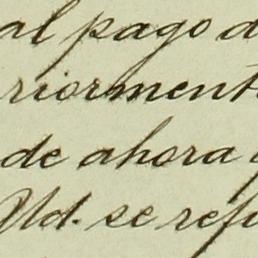 al pago d
riorment
de ahora
Ud. se refi